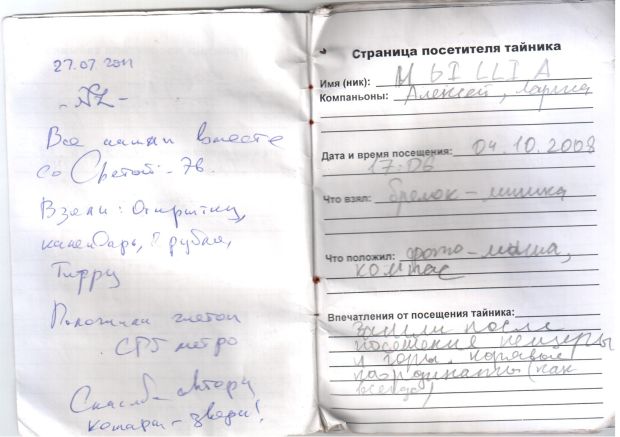 27.07.2011
Все нашли вместе
со Светой-76.
Взяли: Открытку,
календарь, рубля,
Тигру
Положили жетон
СПб метро
Спасибо автору
комары - звери!
Страница посетителя тайника
Имя (ник): МЫШЬ
Компаньоны: Алексей, Лариса
Дата и время посещения: 04.10.2008
17.06
Что взял: брелок-мишка
Что положил: фото-мыша,
компас
Впечатления от посещения тайника:
Зашли после
посещения пещеры
и горы.
(как
всегда)